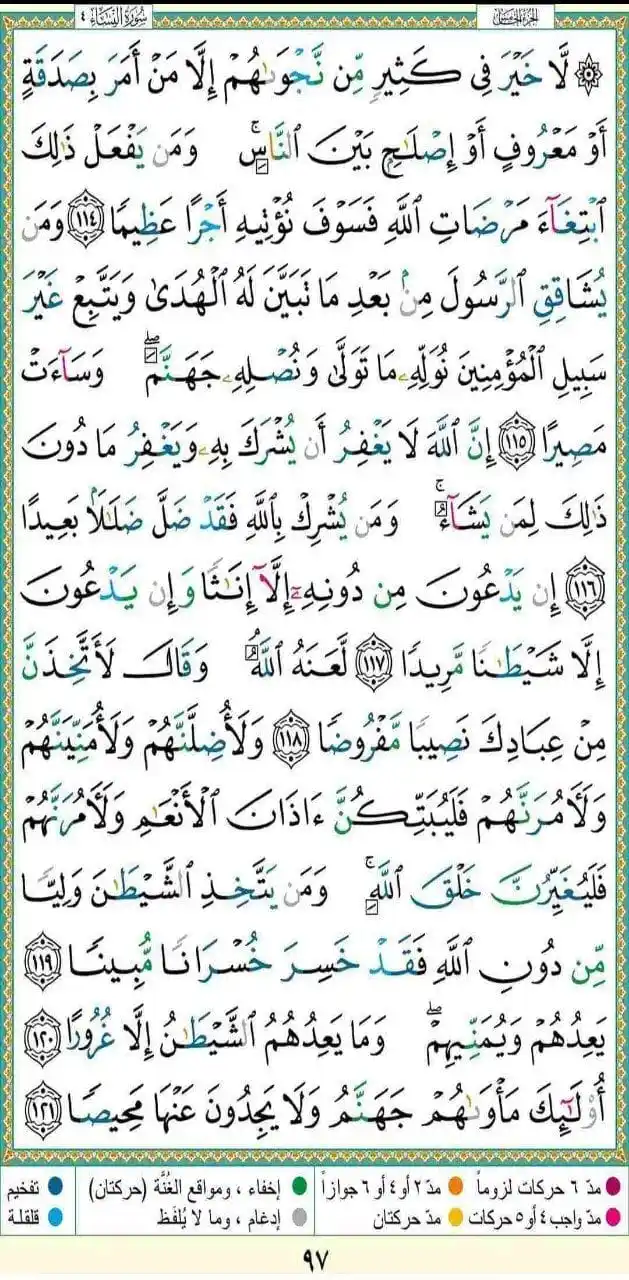 الجزء الخامس
سورة النساء ٤
۞ لَّا خَيْرَ فِى كَثِيرٍ مِّن نَّجْوَىٰهُمْ إِلَّا مَنْ أَمَرَ بِصَدَقَةٍ
أَوْ مَعْرُوفٍ أَوْ إِصْلَٰحٍۭ بَيْنَ ٱلنَّاسِ ۚ وَمَن يَفْعَلْ ذَٰلِكَ
ٱبْتِغَآءَ مَرْضَاتِ ٱللَّهِ فَسَوْفَ نُؤْتِيهِ أَجْرًا عَظِيمًا ١١٤ وَمَن
يُشَاقِقِ ٱلرَّسُولَ مِنۢ بَعْدِ مَا تَبَيَّنَ لَهُ ٱلْهُدَىٰ وَيَتَّبِعْ غَيْرَ
سَبِيلِ ٱلْمُؤْمِنِينَ نُوَلِّهِۦ مَا تَوَلَّىٰ وَنُصْلِهِۦ جَهَنَّمَ ۖ وَسَآءَتْ
مَصِيرًا ١١٥ إِنَّ ٱللَّهَ لَا يَغْفِرُ أَن يُشْرَكَ بِهِۦ وَيَغْفِرُ مَا دُونَ
ذَٰلِكَ لِمَن يَشَآءُ ۚ وَمَن يُشْرِكْ بِٱللَّهِ فَقَدْ ضَلَّ ضَلَٰلًۢا بَعِيدًا
١١٦ إِن يَدْعُونَ مِن دُونِهِۦٓ إِلَّآ إِنَٰثًا وَإِن يَدْعُونَ
إِلَّا شَيْطَٰنًا مَّرِيدًا ١١٧ لَّعَنَهُ ٱللَّهُ ۘ وَقَالَ لَأَتَّخِذَنَّ
مِنْ عِبَادِكَ نَصِيبًا مَّفْرُوضًا ١١٨ وَلَأُضِلَّنَّهُمْ وَلَأُمَنِّيَنَّهُمْ
وَلَءَامُرَنَّهُمْ فَلَيُبَتِّكُنَّ ءَاذَانَ ٱلْأَنْعَٰمِ وَلَءَامُرَنَّهُمْ
فَلَيُغَيِّرُنَّ خَلْقَ ٱللَّهِ ۚ وَمَن يَتَّخِذِ ٱلشَّيْطَٰنَ وَلِيًّا
مِّن دُونِ ٱللَّهِ فَقَدْ خَسِرَ خُسْرَانًا مُّبِينًا ١١٩
يَعِدُهُمْ وَيُمَنِّيهِمْ ۖ وَمَا يَعِدُهُمُ ٱلشَّيْطَٰنُ إِلَّا غُرُورًا ١٢٠
أُو۟لَٰٓئِكَ مَأْوَىٰهُمْ جَهَنَّمُ وَلَا يَجِدُونَ عَنْهَا مَحِيصًا ١٢١
مدّ ٦ حركات لزوماً مدّ ٢ أو ٤ أو ٦ جوازاً إخفاء ، ومواقع الغُنَّة (حركتان) تفخيم
مدّ واجب ٤ أو ٥ حركات مدّ حركتان إدغام ، وما لا يُلفَظ قلقلة
٩٧